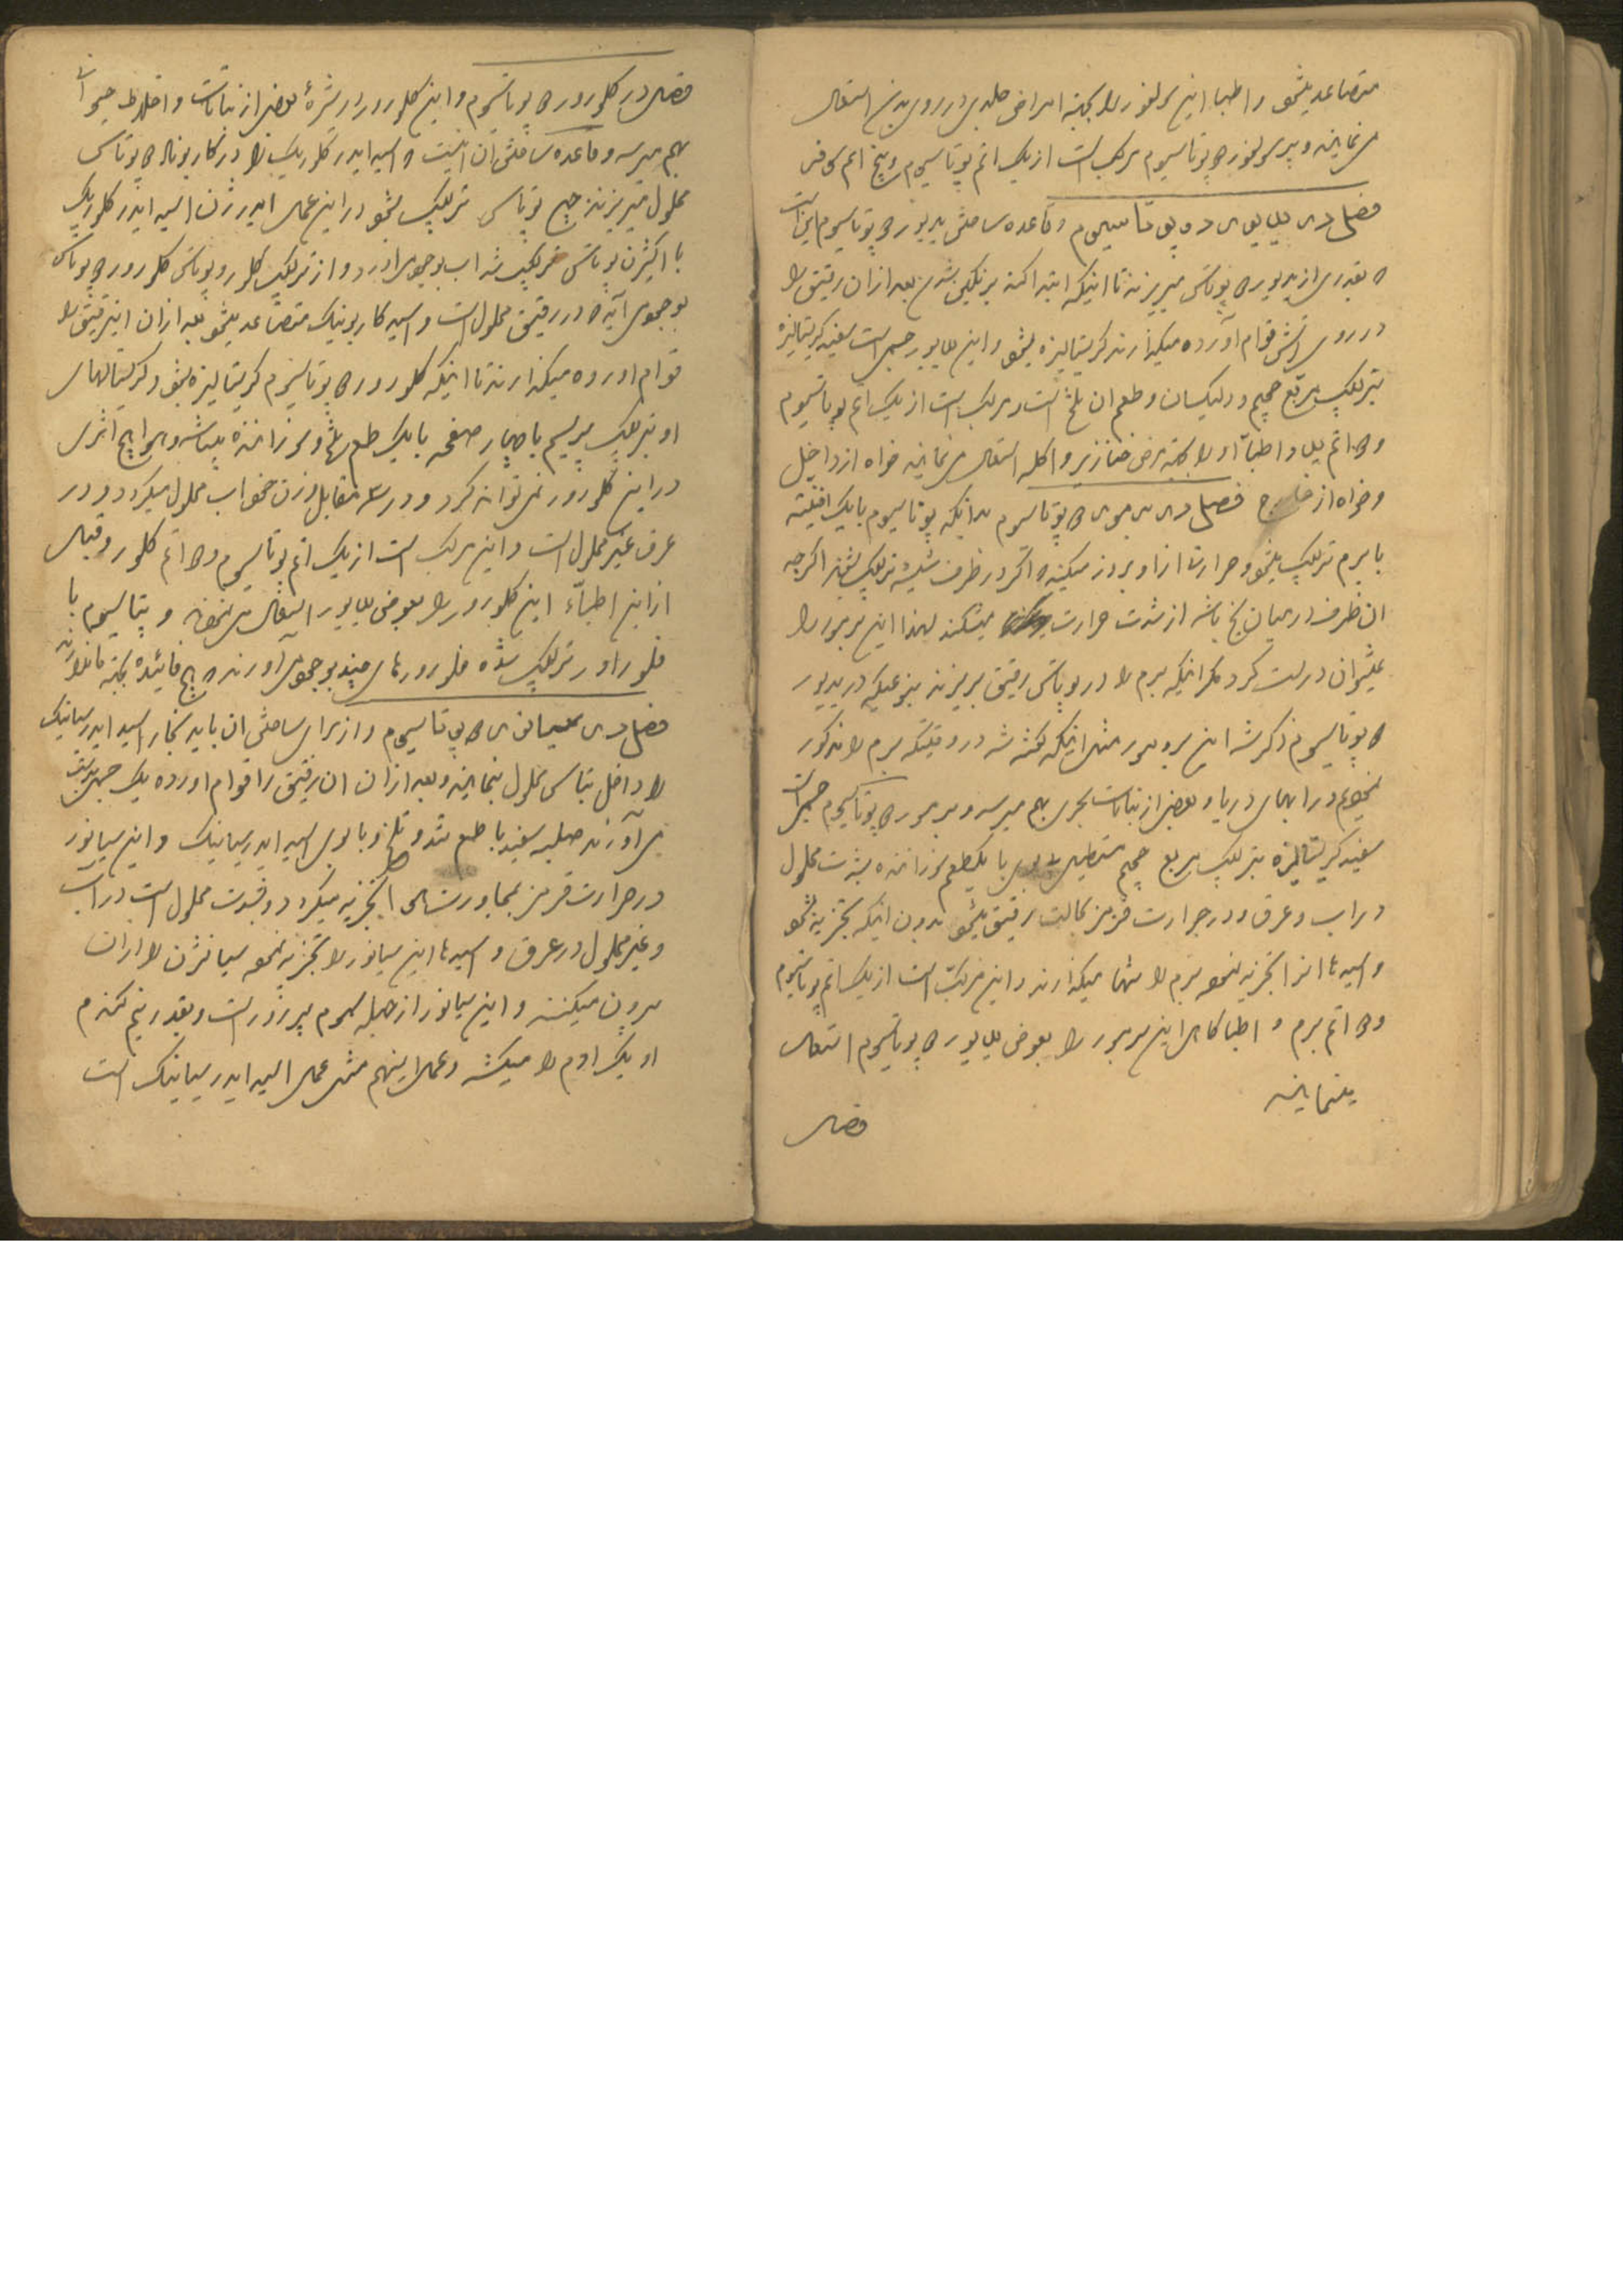 متصاعد میشود و اطبا این سولفور را بجهة امراض جلدی در روی بدن استعمال
می نمایند و پرسولفور د پوتاسیوم مرکب است از یک اتم پوتاسیوم و پنج اتم
فصل در یدور د پوتاسیوم و قاعده ساختن یدور د پوتاسیوم این است
که بقدری از ید در پوتاس میریزند تا اینکه ابتدا کند برنگین شدن بعد از آن رقیق را
در روی آتش قوام آورده میگذارند کریستالیزه میشود و این یدور جسمی است سفید کریستالیزه
بترکیب مربع و طعم آن تلخ است و مرکب است از یک اتم پوتاسیوم
و اتم ید و اطبا او را بجهة مرض خنازیر و اکله استعمال می نمایند خواه از داخل
و خواه از خارج فصل در برمور د پوتاسیوم بدانکه پوتاسیوم با یک
با برم ترکیب میشود و حرارت از او بروز میکند که اگر در ظرف شیشه ترکیب اگرچه
آن ظرف در میان یخ باشد از شدت حرارت میشکند لهذا این برمور را
نمیتوان درست کرد مگر اینکه برم را در پوتاس رقیق بریزند بنوعیکه در یدور
د پوتاسیوم ذکر شد این برمور مثل آنکه گفته شد در وقتیکه برم را مذکور
نمودیم در آبهای دریا و بعضی از نباتات بحری بهم میرسد و برمور د پوتاسیوم جسمی است
سفید کریستالیزه بترکیب مربع مستطیل با یک طعم بشدت محلول
در آب و عرق و در حرارت قرمز بحالت رقیق میشود بدون اینکه تجزیه شود
و اسیدها آنرا تجزیه نموده برم را تنها میگذارند و این مرکب است از یک اتم پوتاسیوم
و اتم برم و اطبا گاهی این برمور را بعوض یدور د پوتاسیوم استعمال
مینمایند
فصل
فصل در کلورور د پوتاسیوم و این کلورور در بعضی از نباتات و اخلاط حیوانات
بهم میرسد و قاعده ساختن آن اینست که اسید ایدرکلریک را در کاربونات د پوتاس
محلول میریزند ترکیب میشود در این عمل ایدرژن اسید ایدرکلریک
با اکسیژن پوتاس ترکیب شده آب بوجود می آورد و از ترکیب کلر و پوتاس کلورور د پوتاس
بوجود می آید که در رقیق محلول است و اسید کاربونیک متصاعد میشود بعد از آن این رقیق را
قوام آورده میگذارند تا اینکه کلورور د پوتاسیوم کریستالیزه شود و کریستالهای
او بترکیب با چهار صفحه با یک طعم تلخ میباشد و هوا هیچ اثری
در این کلورور نمی تواند کرد و در سه مقابل وزن خود آب محلول میگردد و در
عرق غیر محلول است و این مرکب است از یک اتم پوتاسیوم و اتم کلور و قبل
از این اطباء این کلورور را بعوض یدور استعمال می نمودند و پتاسیوم با
فلور ترکیب شده فلورورهای چند بوجود می آورند که هیچ فائده بجهة ما ندارند
فصل در سیانور د پوتاسیوم و از برای ساختن آن باید بخار اسید ایدرسیانیک
را داخل پتاس محلول بنمایند و بعد از آن آن رقیق را قوام آورده یک جسم
می آورند سفید با طعم تند و تلخ و با بوی اسید ایدرسیانیک و این سیانور
در حرارت قرمز بمجاورت هوا تجزیه میگردد و بشدت محلول است در آب
و غیر محلول در عرق و اسیدها این سیانور را تجزیه نموده سیانژن را از آن
بیرون میکنند و این سیانور از جمله سموم پرزور است و بقدر نیم گندم
او یک آدم را میکشد و عمل اینهم مثل عمل اسید ایدرسیانیک است